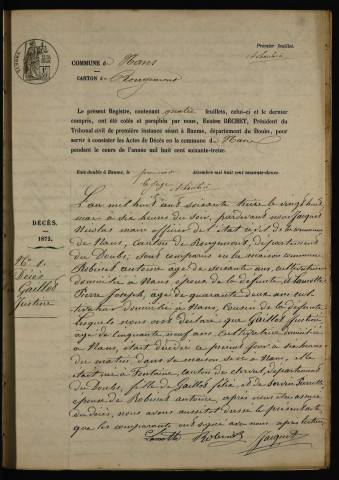 Premier feuillet.
COMMUNE de Nans
CANTON de Rougemont
Le présent Registre, contenant quatre feuillets, celui-ci et le dernier
compris, ont été cotés et paraphés par nous, Eustase BÉCHET, Président du
Tribunal civil de première instance séant à Baume, département du Doubs, pour
servir à constater les Actes de Décès en la commune de Nans
pendant le cours de l'année mil huit cent soixante-treize.
Fait double à Baume, le premier décembre mil huit cent soixante-douze.
Le Juge
DÉCÈS.
1873.
No 1.
Décès
Gaillot
Justine
L'an mil huit cent soixante treize le vingt huit
mars à six heures du soir, pardevant nous Jacquet
Nicolas maire officier de l'état civil de la commune
de Nans, canton de Rougemont, département
du Doubs, sont comparus en la maison commune
Robinet antoine âgé de soixante ans, cultivateur
domicilié à Nans, époux de la défunte, et Lamotte
Pierre Joseph, âgé de quarante deux ans cul-
tivateur domicilié à Nans, cousin de la défunte
lesquels nous ont déclaré que Gaillot Justine
âgée de cinquante neuf ans, cultivatrice domiciliée
à Nans, était décédée ce présent jour à six heures
du matin dans sa maison sise à Nans, elle
était née à Fontaine, canton de clerval, département
du Doubs, fille de Gaillot félix et de Sordier Pierrette
épouse de Robinet antoine, après nous être assuré
du décès, nous avons aussitôt dressé le présent acte
que les comparants ont signé avec nous après lecture
Lamotte Robinet Jacquet